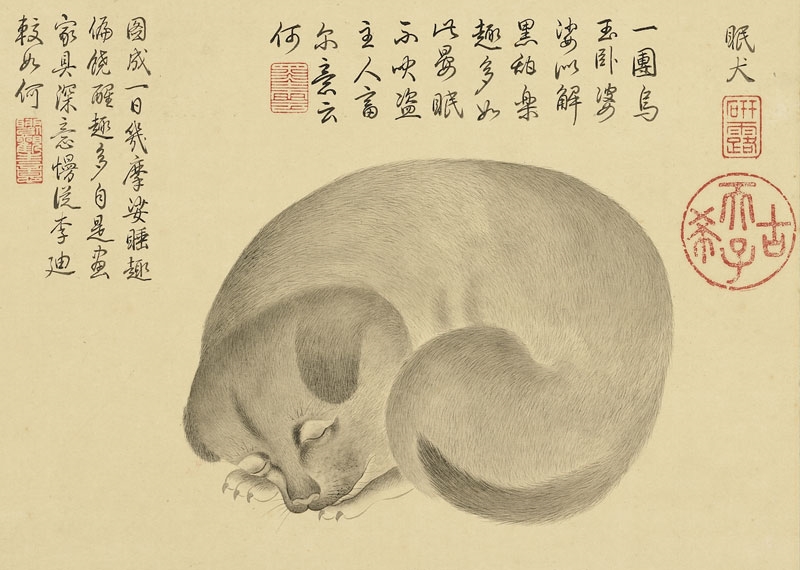 眠犬
研露
古希天子
一團烏
玉卧婆
娑似解
黑甜樂
趣多如
此晏眠
不吠盗
主人畜
尔意云
何
圖成一日幾摩娑睡趣
偏饒醒趣多自是畫
家具深意慢從李迪
較如何